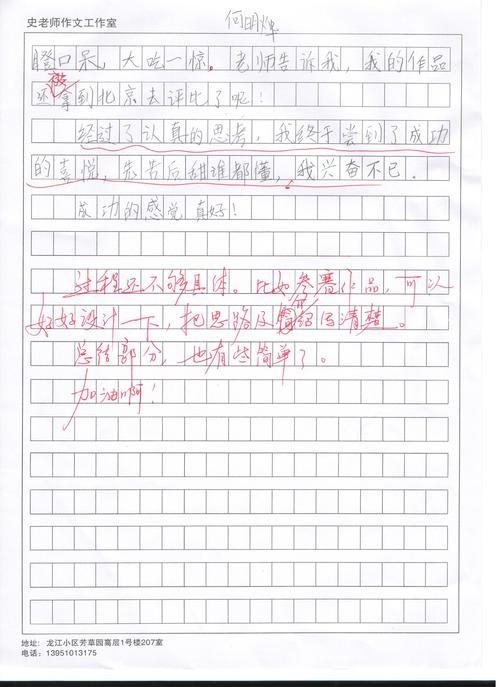 史老师作文工作室
何明烨
瞪口呆,大吃一惊。老师告诉我,我的作品
还被拿到北京去评比了呢!
经过了认真的思考,我终于尝到了成功
的喜悦,先苦后甜谁都懂,我兴奋不已。
成功的感觉真好!
过程还不够具体。比如参赛作品,可以
好好设计一下,把思路及写清楚。
总结部分,也有些简单了。
加油啊!
地址:龙江小区芳草园高层1号楼207室
电话:13951013175